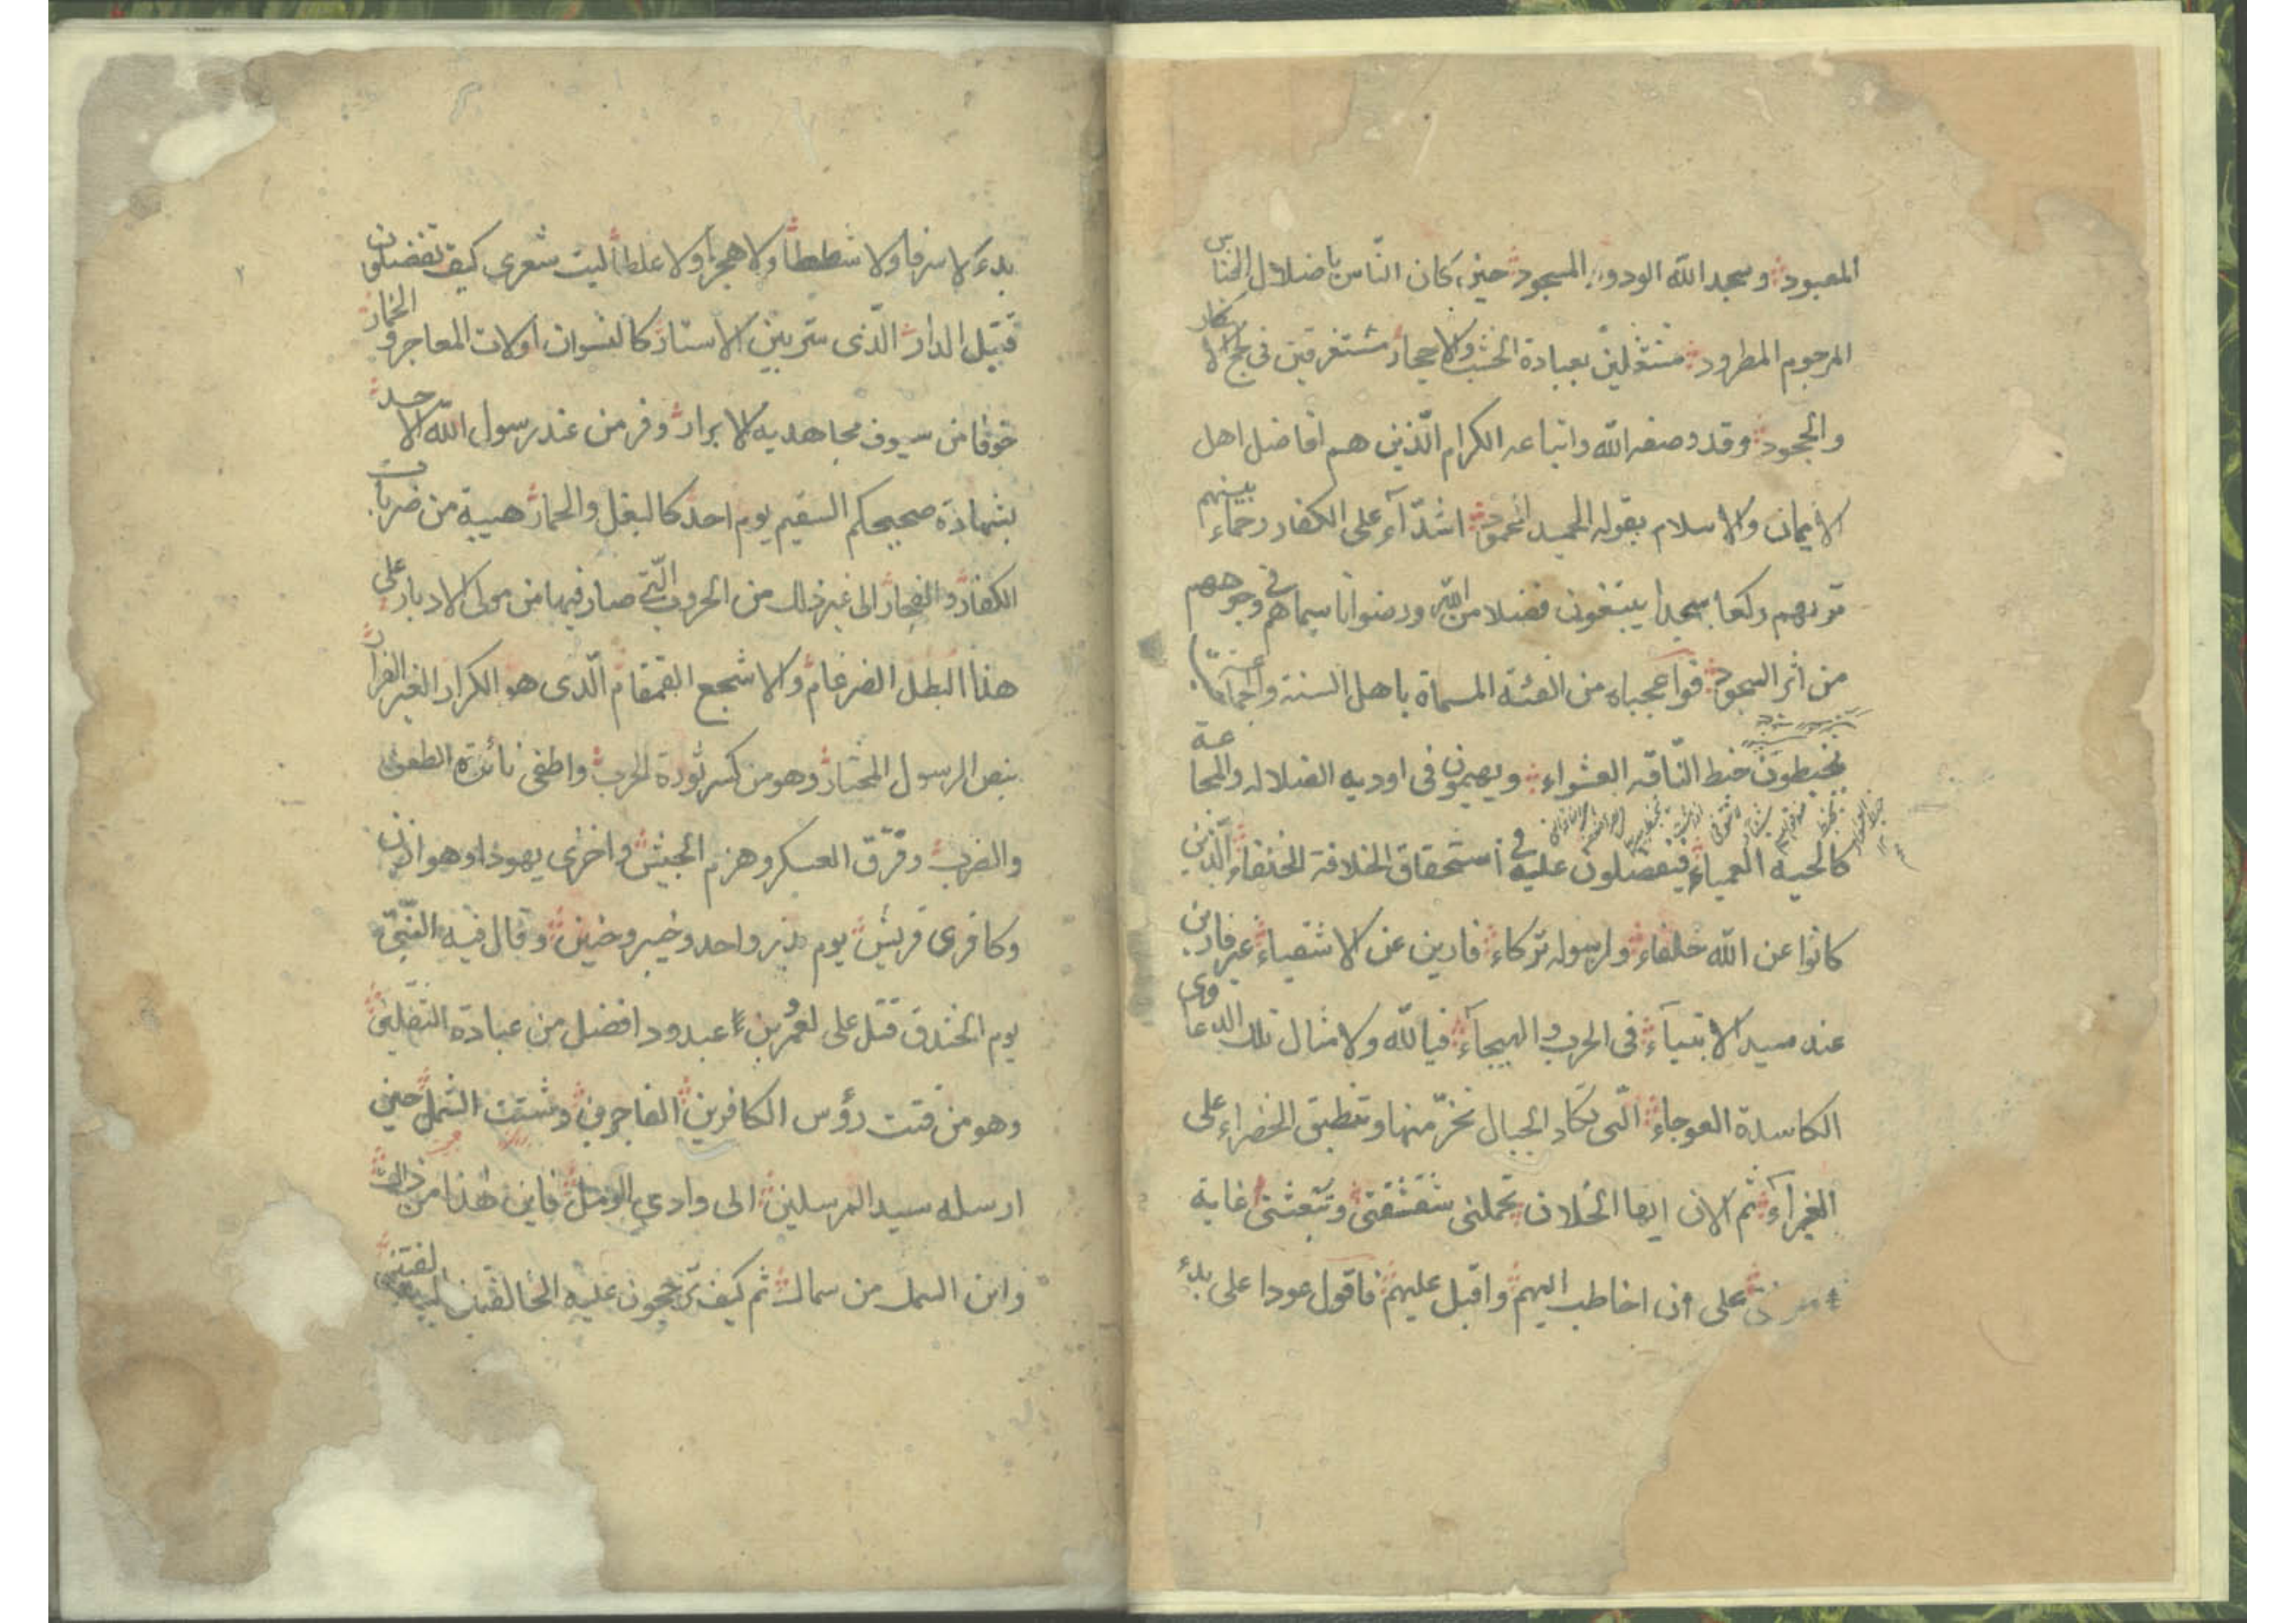 المعبود وسجد الله الودود المسجود حين كان النّاس باضلال الخناس
المرجوم المطرود مشتغلين بعبادة الخشب والاحجار مستغرقين فى لجج الانكار
والجحود وقد وصفه الله واتباعه الكرام الّذين هم افاضل اهل
الايمان والاسلام بقوله الحميد المحمود اشدّآء على الكفار رحماء بينهم
تريهم ركعا سجدا يبتغون فضلا من الله ورضوانا سيماهم فى وجوههم
من اثر السجود فوا عجباه من الفئة المسماة باهل السنة والجماعة
يخبطون خبط النّاقه العشواء ويهيمون فى اوديه الضلاله والمجاعة
كالحيه العمياء فيفضلون عليه فى استحقاق الخلافة للحنفاء الّذين
كانوا عن الله خلفاء ولرسوله تركاء فارين عن الاشقياء غير قارين
عند سيد الانبياء فى الحرب والهيجاء فيا لله ولامثال تلك الدعاوى
الكاسدة العوجاء الّتى تكاد الجبال تخرّ منها وتنطبق الخضراء على
الغبرآء ثم الان ايها الخلان تحملنى شقشقتى وتبعثنى غاية
على ان اخاطب اليهم واقبل عليهم فاقول عودا على بدء
بدء لا سرفا ولا شططا ولا هجرا ولا غلطا ليت شعرى كيف تفضلون
قتيل الدار الّذى ستر بين الاستار كالنسوان اولات المعاجر والخمار
خوفا من سيوف مجاهديه الابرار وفر من عند رسول الله الاحد
بشهادة صحيحكم السقيم يوم احد كالبغل والحمار هيبة من ضربات
الكفار والفجار الى غير ذلك من الحروب الّتى صار فيها من مولى الادبار على
هذا البطل الضرغام والاشجع القمقام الّذى هو الكرار الغير الفرار
بنص الرسول المختار وهو من كسر ثورة الحرب واطفى نائرة الطعن
والضرب وفرّق العسكر وهزم الجيش واخزى يهوذا وهوازن
وكافرى قريش يوم بدر واحد وخيبر وحنين وقال فيه النّبىّ
يوم الخندق قتل على لعمرو بن عبدود افضل من عبادة الثّقلين
وهو من فتت رؤس الكافرين الفاجرين وشتت الشمل حين
ارسله سيد المرسلين الى وادي الرمل فاين هذا من ذاك
واين السمك من سماك ثم كيف ترجحون عليه